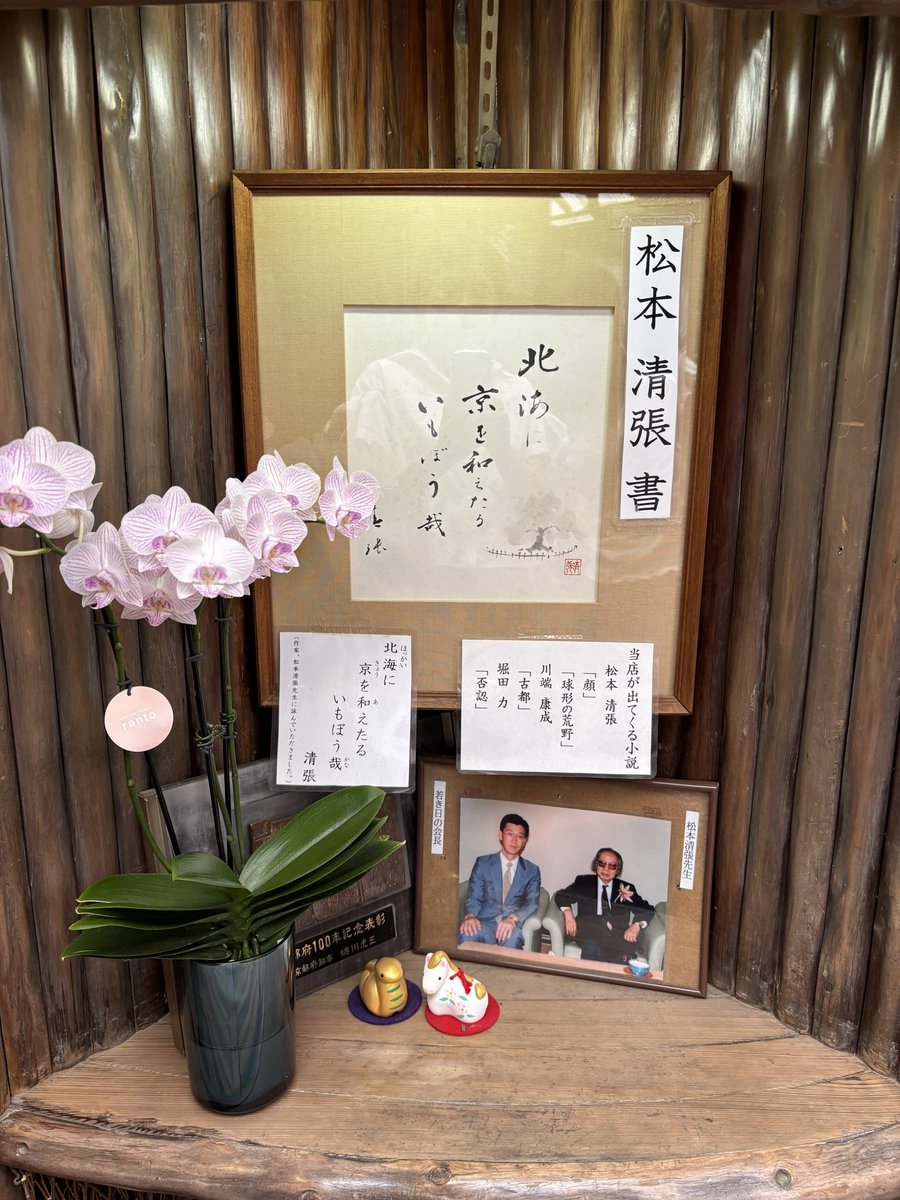 松本 清張 書
北海に
京を和えたる
いもぼう哉
清張
北海に
ほっかい
京を和えたる
きょう
あ
いもぼう哉
かな
清張
(作家、松本清張先生に詠んでいただきました。)
当店が出てくる小説
松本 清張
「顔」
「球形の荒野」
川端 康成
「古都」
堀田 力
「否認」
若き日の会長
松本清張先生
ranto
都府100年記念表彰
京都府知事 蜷川虎三